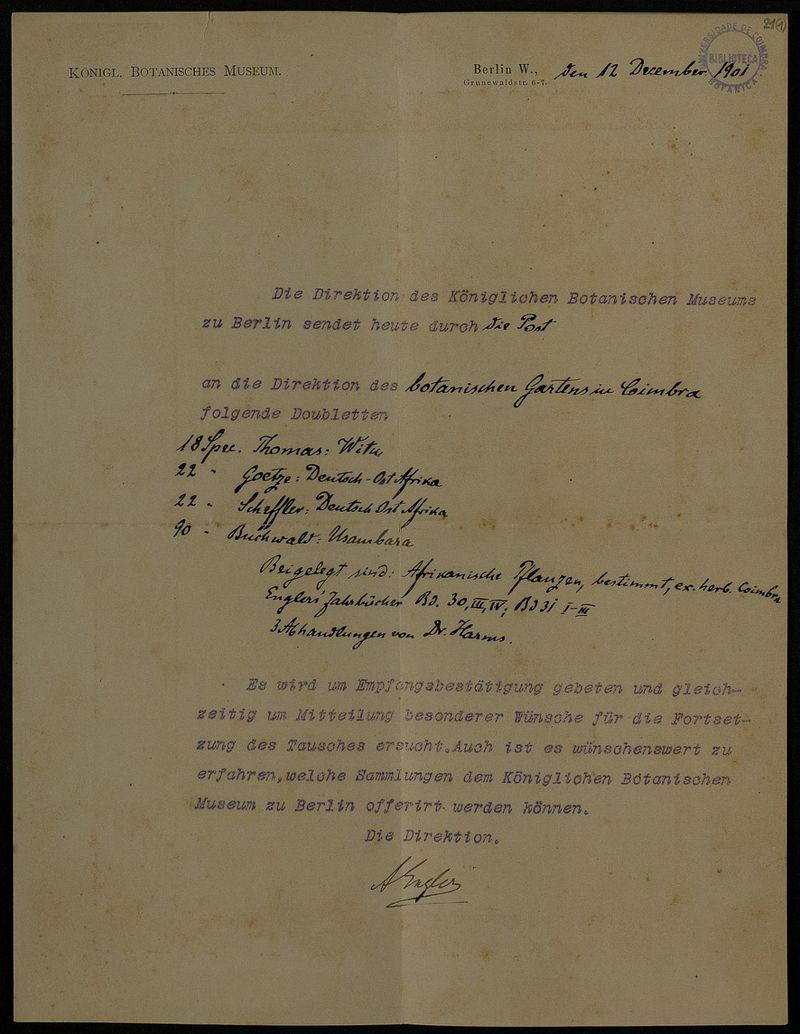 21(1)
UNIVERSIDADE DE COIMBRA
BIBLIOTECA
BOTANICA
KÖNIGL. BOTANISCHES MUSEUM.
Berlin W., den 12 December 1901
Grunewaldstr. 6-7.
Die Direktion des Königlichen Botanischen Museums
zu Berlin sendet heute durch die Post
an die Direktion des botanischen Gartens in Coimbra
folgende Doubletten
18 Spec. Thomas: Witu
22 " Goetze: Deutsch-Ost Afrika
22 " Scheffler: Deutsch Ost Afrika
90 " Buchwald: Usambara
Beigelegt sind: Afrikanische Pflanzen, bestimmt, ex. herb. Coimbra
Englers' Jahrbücher Bd. 30, III, IV; Bd 31 I-III
3 Abhandlungen von Dr. Harms.
Es wird um Empfangsbestätigung gebeten und gleich-
zeitig um Mitteilung besonderer Wünsche für die Fortset-
zung des Tausches ersucht. Auch ist es wünschenswert zu
erfahren, welche Sammlungen dem Königlichen Botanischen
Museum zu Berlin offerirt werden können.
Die Direktion.
A Engler